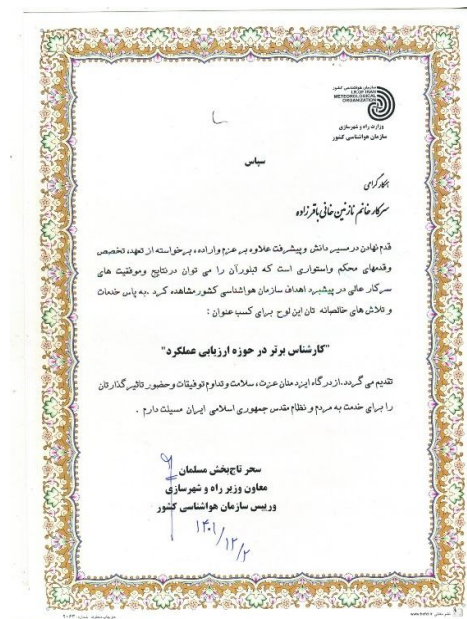 سازمان هواشناسی کشور
I.R. OF IRAN
METEOROLOGICAL
ORGANIZATION
وزارت راه و شهرسازی
سازمان هواشناسی کشور
سپاس
همکار گرامی
سرکار خانم نازنین خانی باقرزاده
قدم نهادن در مسیر دانش و پیشرفت علاوه بر عزم و اراده، برخواسته از تعهد، تخصص
وقدمهای محکم واستواری است که تبلورآن را می توان در نتایج وموفقیت های
سرکار عالی در پیشبرد اهداف سازمان هواشناسی کشور مشاهده کرد .به پاس خدمات
و تلاش های خالصانه تان این لوح برای کسب عنوان :
"کارشناس برتر در حوزه ارزیابی عملکرد"
تقدیم می گردد.از درگاه ایزد منان عزت، سلامت وتداوم توفیقات وحضور تاثیرگذارتان
را برای خدمت به مردم و نظام مقدس جمهوری اسلامی ایران مسیلت دارم .
سحر تاج‌بخش مسلمان
معاون وزیر راه و شهرسازی
ورییس سازمان هواشناسی کشور
۱۴۰۱/۱۲/۲